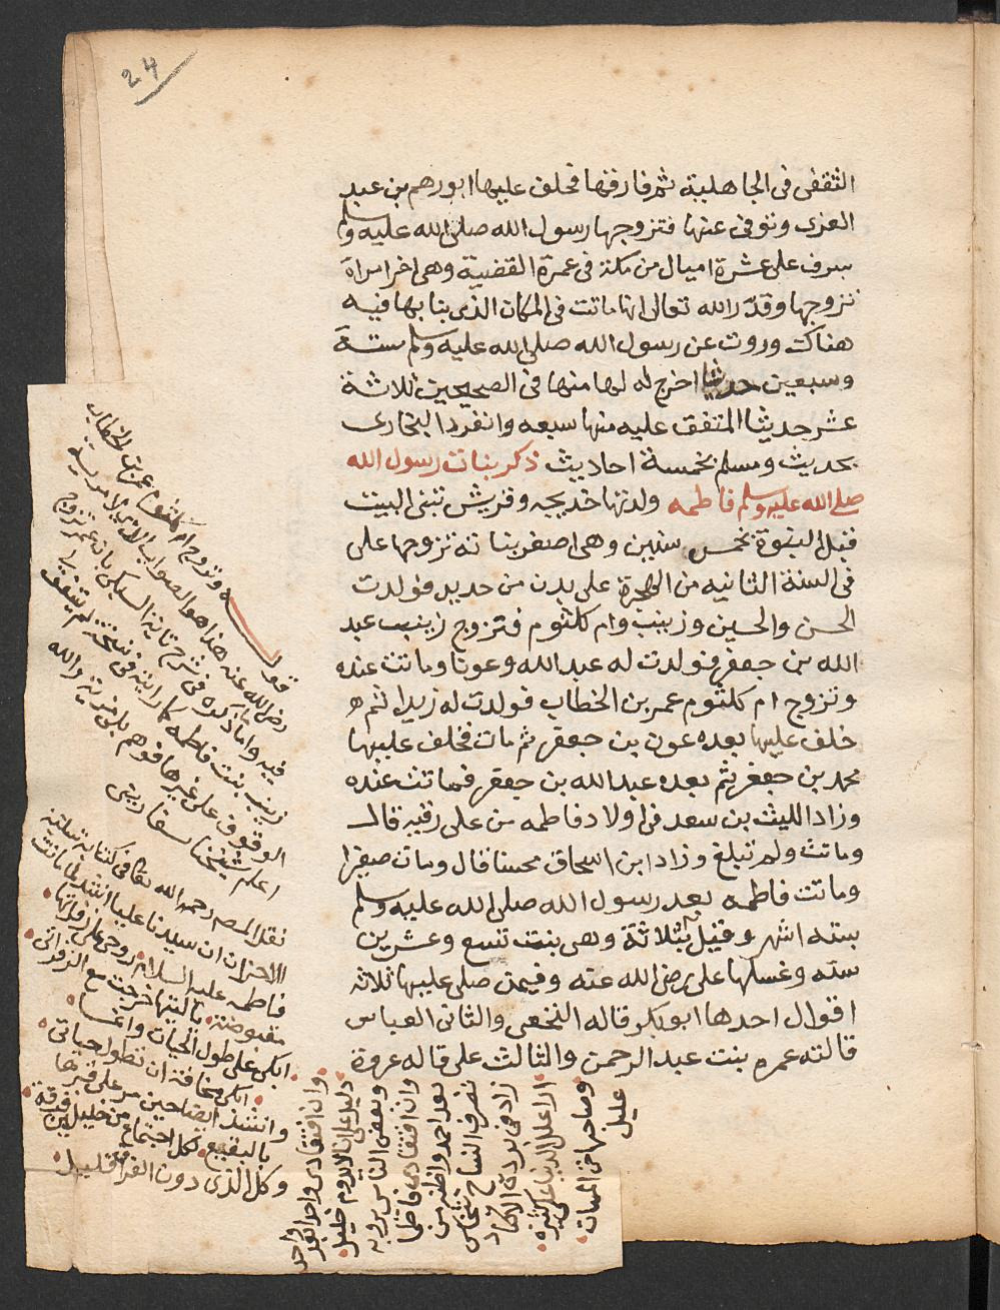 24
الثقفى فى الجاهلية ثم فارقها فخلف عليها ابو رهم بن عبد
العزى وتوفى عنها فتزوجها رسول الله صلى الله عليه وسلم
بسرف على عشرة اميال من مكة فى عمرة القضية وهى اخر امراة
تزوجها وقدر الله تعالى انها ماتت فى المكان الذى بنا بها فيه
هناك وروت عن رسول الله صلى الله عليه وسلم ستة
وسبعين حديثا اخرج له لها منها فى الصحيحين ثلاثة
عشر حديثا المتفق عليه منها سبعه وانفرد البخارى
بحديث ومسلم بخمسة احاديث ذكر بنات رسول الله
صلى الله عليه وسلم فاطمه ولدتها خديجه وقريش تبنى البيت
قبل النبوة بخمس سنين وهى اصغر بناته تزوجها على
فى السنة الثانيه من الهجرة على بدن من حديد فولدت
الحسن والحسين وزينب وام كلثوم فتزوج زينب عبد
الله بن جعفر فولدت له عبد الله وعونا وماتت عنده
وتزوج ام كلثوم عمر بن الخطاب فولدت له زيدا ثم
خلف عليها بعده عون بن جعفر ثم مات فخلف عليها
محمد بن جعفر ثم بعده عبد الله بن جعفر فماتت عنده
وزاد الليث بن سعد فى اولاد فاطمه من على رقيه قال
وماتت ولم تبلغ وزاد ابن اسحاق محسنا قال ومات صغيرا
وماتت فاطمه بعد رسول الله صلى الله عليه وسلم
بسته اشهر وقيل بثلاثة وهى بنت تسع وعشرين
سنه وغسلها على رضى الله عنه وفيمن صلى عليها ثلاثه
اقوال احدها ابو بكر قاله النخعى والثانى العباس
قالته عمره بنت عبد الرحمن والثالث على قاله عروة
قوله وتزوج ام كلثوم عمر بن الخطاب
رضى الله عنه هذا هو الصواب
فيه واما ما ذكره فى شرح تائية السبكى بان عمر تزوج
زينب بنت فاطمه كما رايته فى نسخة لم يتفق
الوقوف على غيرها فوهم بلا مرية والله
اعلم شيخنا
نقل المصـ رحمه الله تعالى فى كتابه
الاحزان ان سيدنا عليا انشد لما ماتت
فاطمه عليها السلام روحى على زفراتها
ياليتها خرجت مع الزفرات
ابكى على طول الحياة وانما
ابكى مخافة ان تطول حياتى
وانشد ايضا حين مر على قبرها
بالبقيع لكل اجتماع من خليلين فرقة
وكل الذى دون الفراق قليل
وان افتقادى واحدا بعد واحد
دليل على ان لا يدوم خليل
وبعض الناس يرويه
وان افتقادى فاطما
بعد احمد
ارى علل الدنيا على كثيرة
وصاحبها حتى الممات
عليل